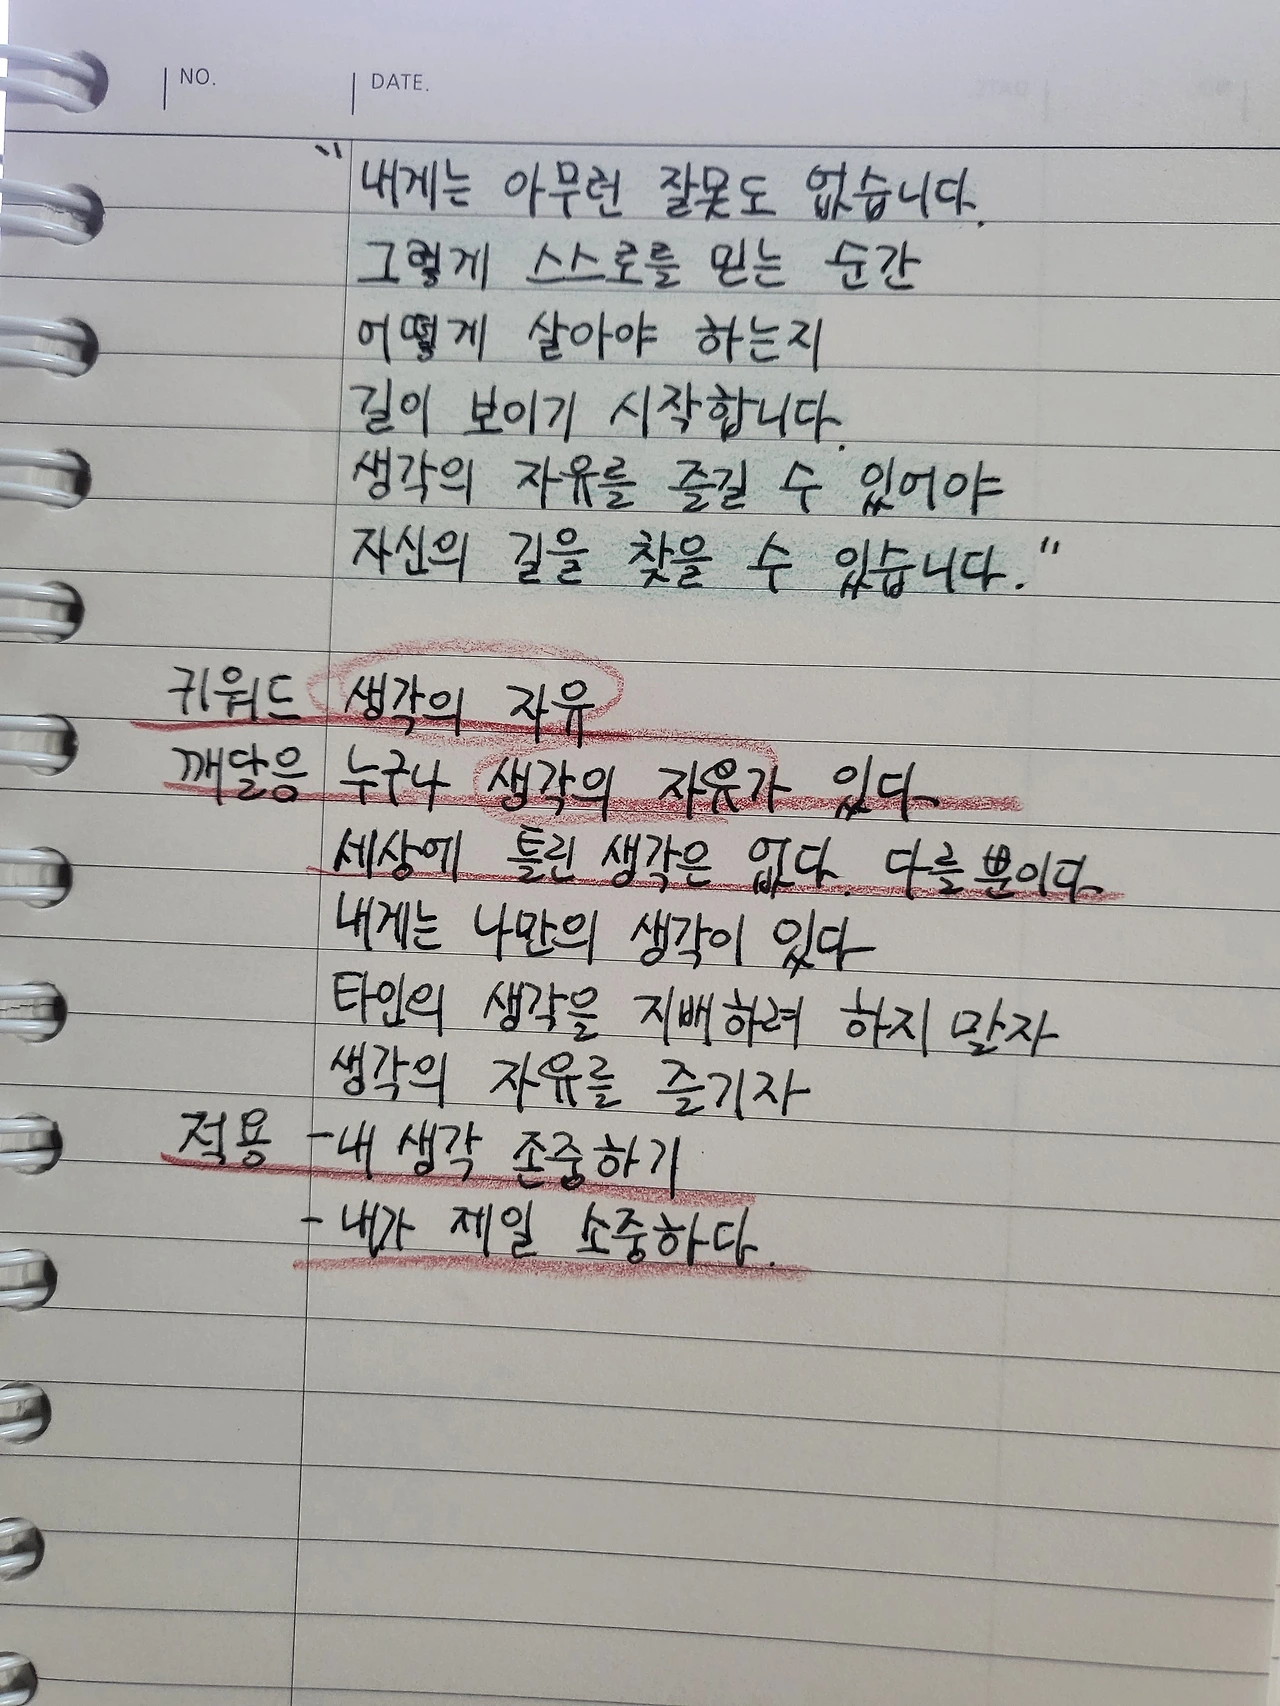 NO. DATE.
"내게는 아무런 잘못도 없습니다.
그렇게 스스로를 믿는 순간
어떻게 살아야 하는지
길이 보이기 시작합니다.
생각의 자유를 즐길 수 있어야
자신의 길을 찾을 수 있습니다."
키워드 생각의 자유
깨달음 누구나 생각의 자유가 있다
세상에 틀린 생각은 없다. 다를 뿐이다
내게는 나만의 생각이 있다
타인의 생각을 지배하려 하지 말자
생각의 자유를 즐기자
적용 -내 생각 존중하기
-내가 제일 소중하다.